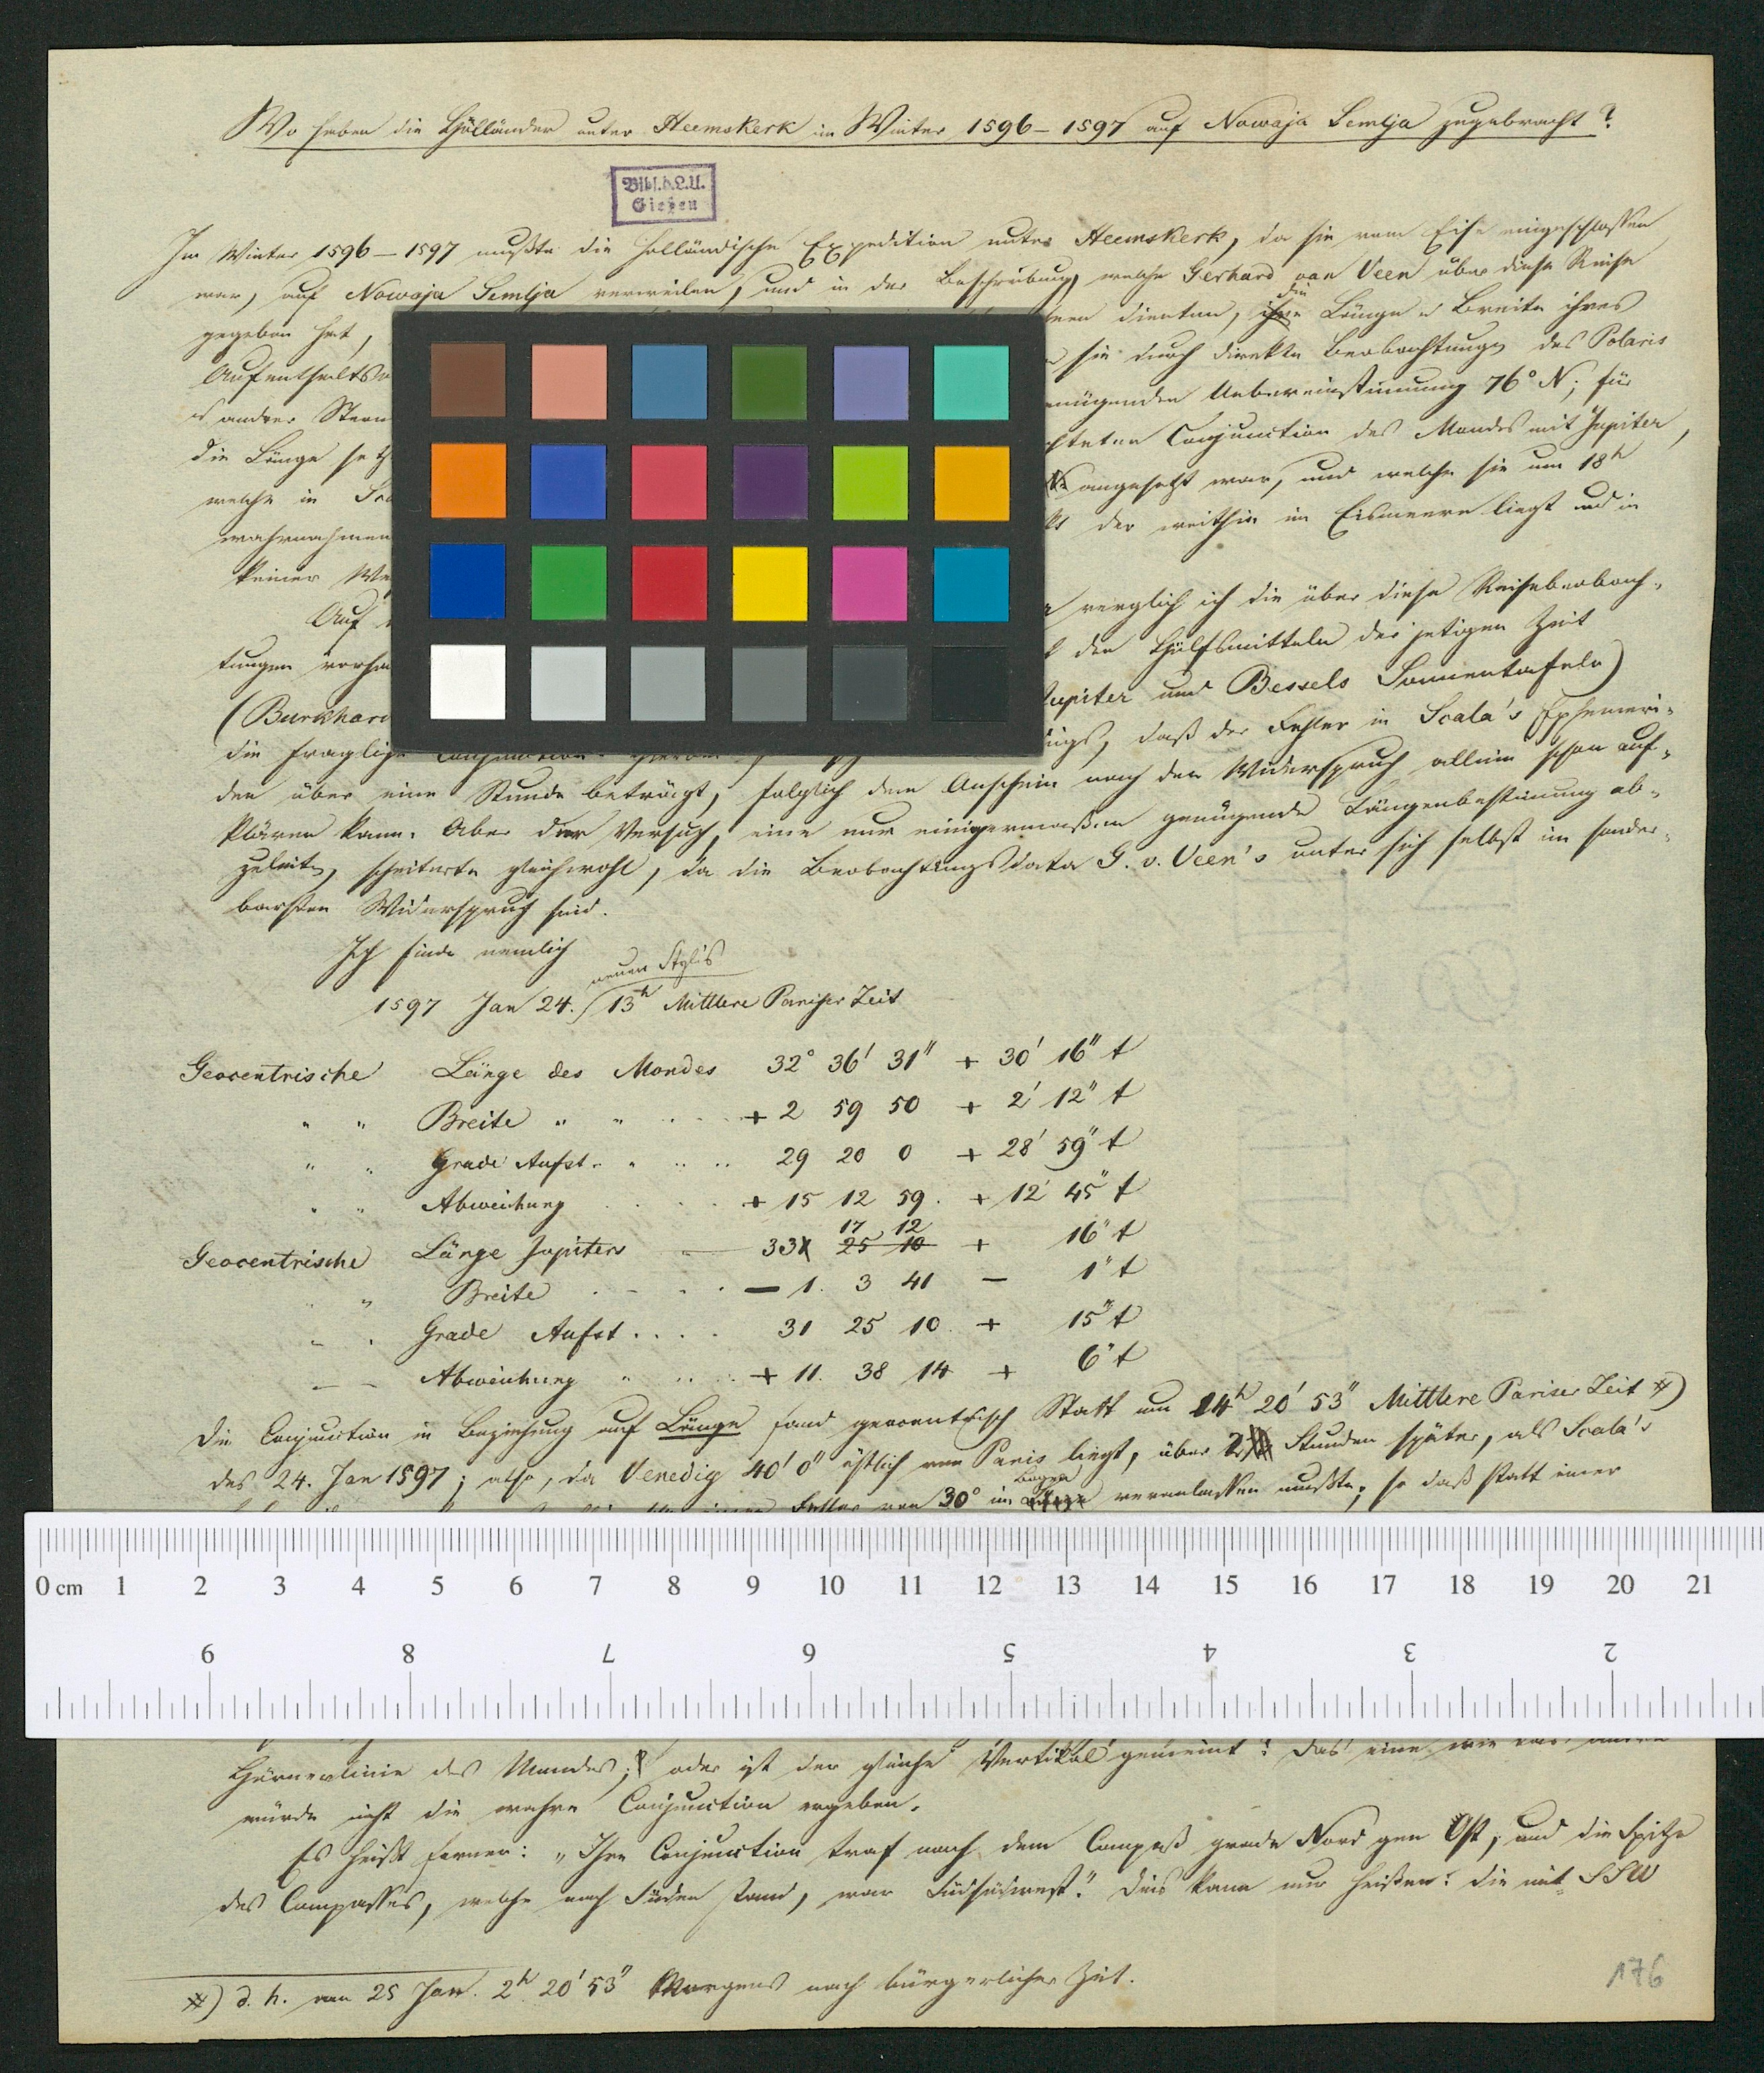 Wo haben die Holländer unter Heemskerk im Winter 1596–1597 auf Nowaja Semlja zugebracht?
Bibl.d.L.U.
Gießen
Im Winter 1596–1597 mußte die holländische Expedition unter Heemskerk, da sie vom Eise eingeschlossen
war, auf Nowaja Semlja verweilen, und in der Beschreibung, welche Gerhard van Veen über diese Reise
gegeben hat, dienten, die Länge u Breite ihres
Aufenthalts sie durch direkte Beobachtungen des Polaris
u andrer Stern Uebereinstimmung 76° N; für
die Länge Conjunction des Mondes mit Jupiter,
welche in angesetzt war, und welche sie um 18h
wahrnahmen der weithin im Eismeere liegt und in
keiner
Auf verglich ich die über diese Reisebeobach-
tungen den Hülfsmitteln der jetigen Zeit
(Burkhard Jupiter und Bessels Sonnentafeln)
die fragliche daß der Fehler in Scala's Ephemeri-
den über eine Stunde beträgt, folglich dem Anschein nach den Widerspruch allein schon auf-
klären kann. Aber der Versuch, eine nur einigermaßen genügende Längenbestimung ab-
zuleiten, scheiterte gleichwohl, da die Beobachtungsdata G. v. Veen's unter sich selbst im sonder-
barsten Widerspruch sind.
Ich finde nemlich
neuen Styls
1597 Jan 24. 13h Mittlere Pariser Zeit
Geocentrische Länge des Mondes 32° 36' 31" + 30' 16" t
" " Breite " " + 2 59 50 + 2' 12" t
" " Grade Aufst. 29 20 0 + 28' 59" t
" " Abweichung + 15 12 59. + 12' 45" t
17 12
Geocentrische Länge Jupiters 33 25 10 + 16" t
" Breite – 1. 3 41 – 1" t
Grade Aufst.... 31 25 10 + 15" t
Abweichung + 11. 38 14 + 6" t
Die Conjunction in Beziehung auf Länge fand geocentrisch Statt um 14h 20' 53" Mittlere Pariser Zeit *)
des 24. Jan 1597; also, da Venedig 40' 0" östlich von Paris liegt, über 2 Stunden später, als Scala's
Bogen
Fehler von 30° im veranlassen mußte; so daß statt einer
0 cm 1 2 3 4 5 6 7 8 9 10 11 12 13 14 15 16 17 18 19 20 21
9 8 7 6 5 4 3 2
Hörnerlinie des Mondes; oder ist der gleiche Vertikal gemeint? Das eine wie das andre
würde nicht die wahre Conjunction ergeben.
Es heißt ferner: „Ihre Conjunction traf nach dem Compaß grade Nord gen Ost, und die Spitze
des Compasses, welche nach Süden stand, war Südsüdwest." Dies kann nur heißen: die mit SSW
*) d. h. am 25 Jan. 2h 20' 53" Morgens nach bürgerlicher Zeit.
176